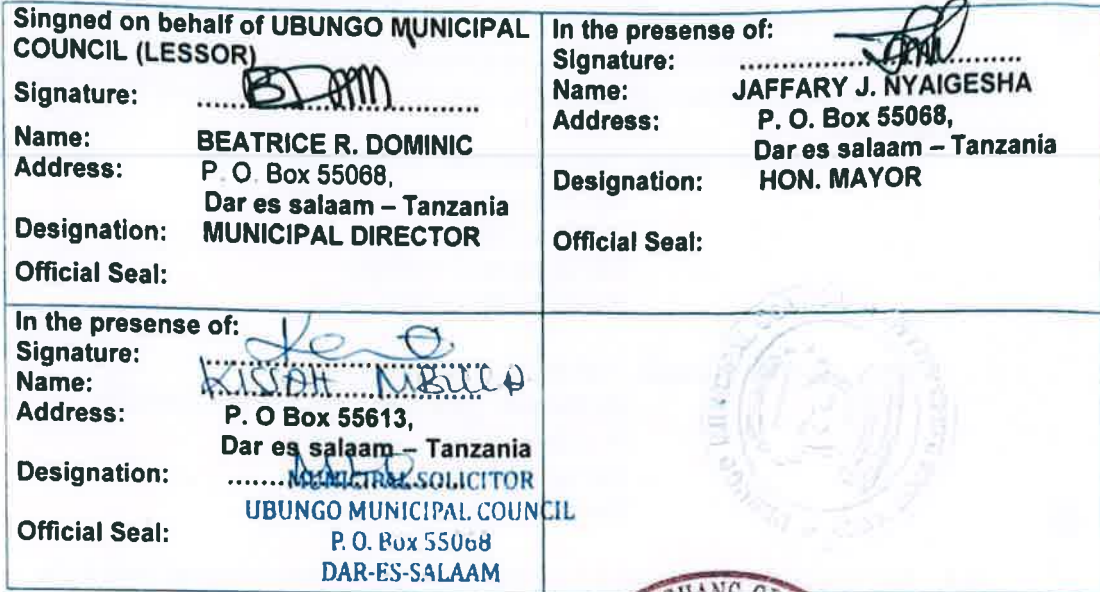 Singned on behalf of UBUNGO MUNICIPAL
COUNCIL (LESSOR)
Signature: ........................................
Name: BEATRICE R. DOMINIC
Address: P. O. Box 55068,
Dar es salaam – Tanzania
Designation: MUNICIPAL DIRECTOR
Official Seal:
In the presense of:
Signature: ........................................
Name: JAFFARY J. NYAIGESHA
Address: P. O. Box 55068,
Dar es salaam – Tanzania
Designation: HON. MAYOR
Official Seal:
In the presense of:
Signature: ........................................
Name: KISSAH MBILLA
Address: P. O Box 55613,
Dar es salaam – Tanzania
Designation: ........MUNICIPAL SOLICITOR
UBUNGO MUNICIPAL COUNCIL
Official Seal: P. O. Box 55068
DAR-ES-SALAAM